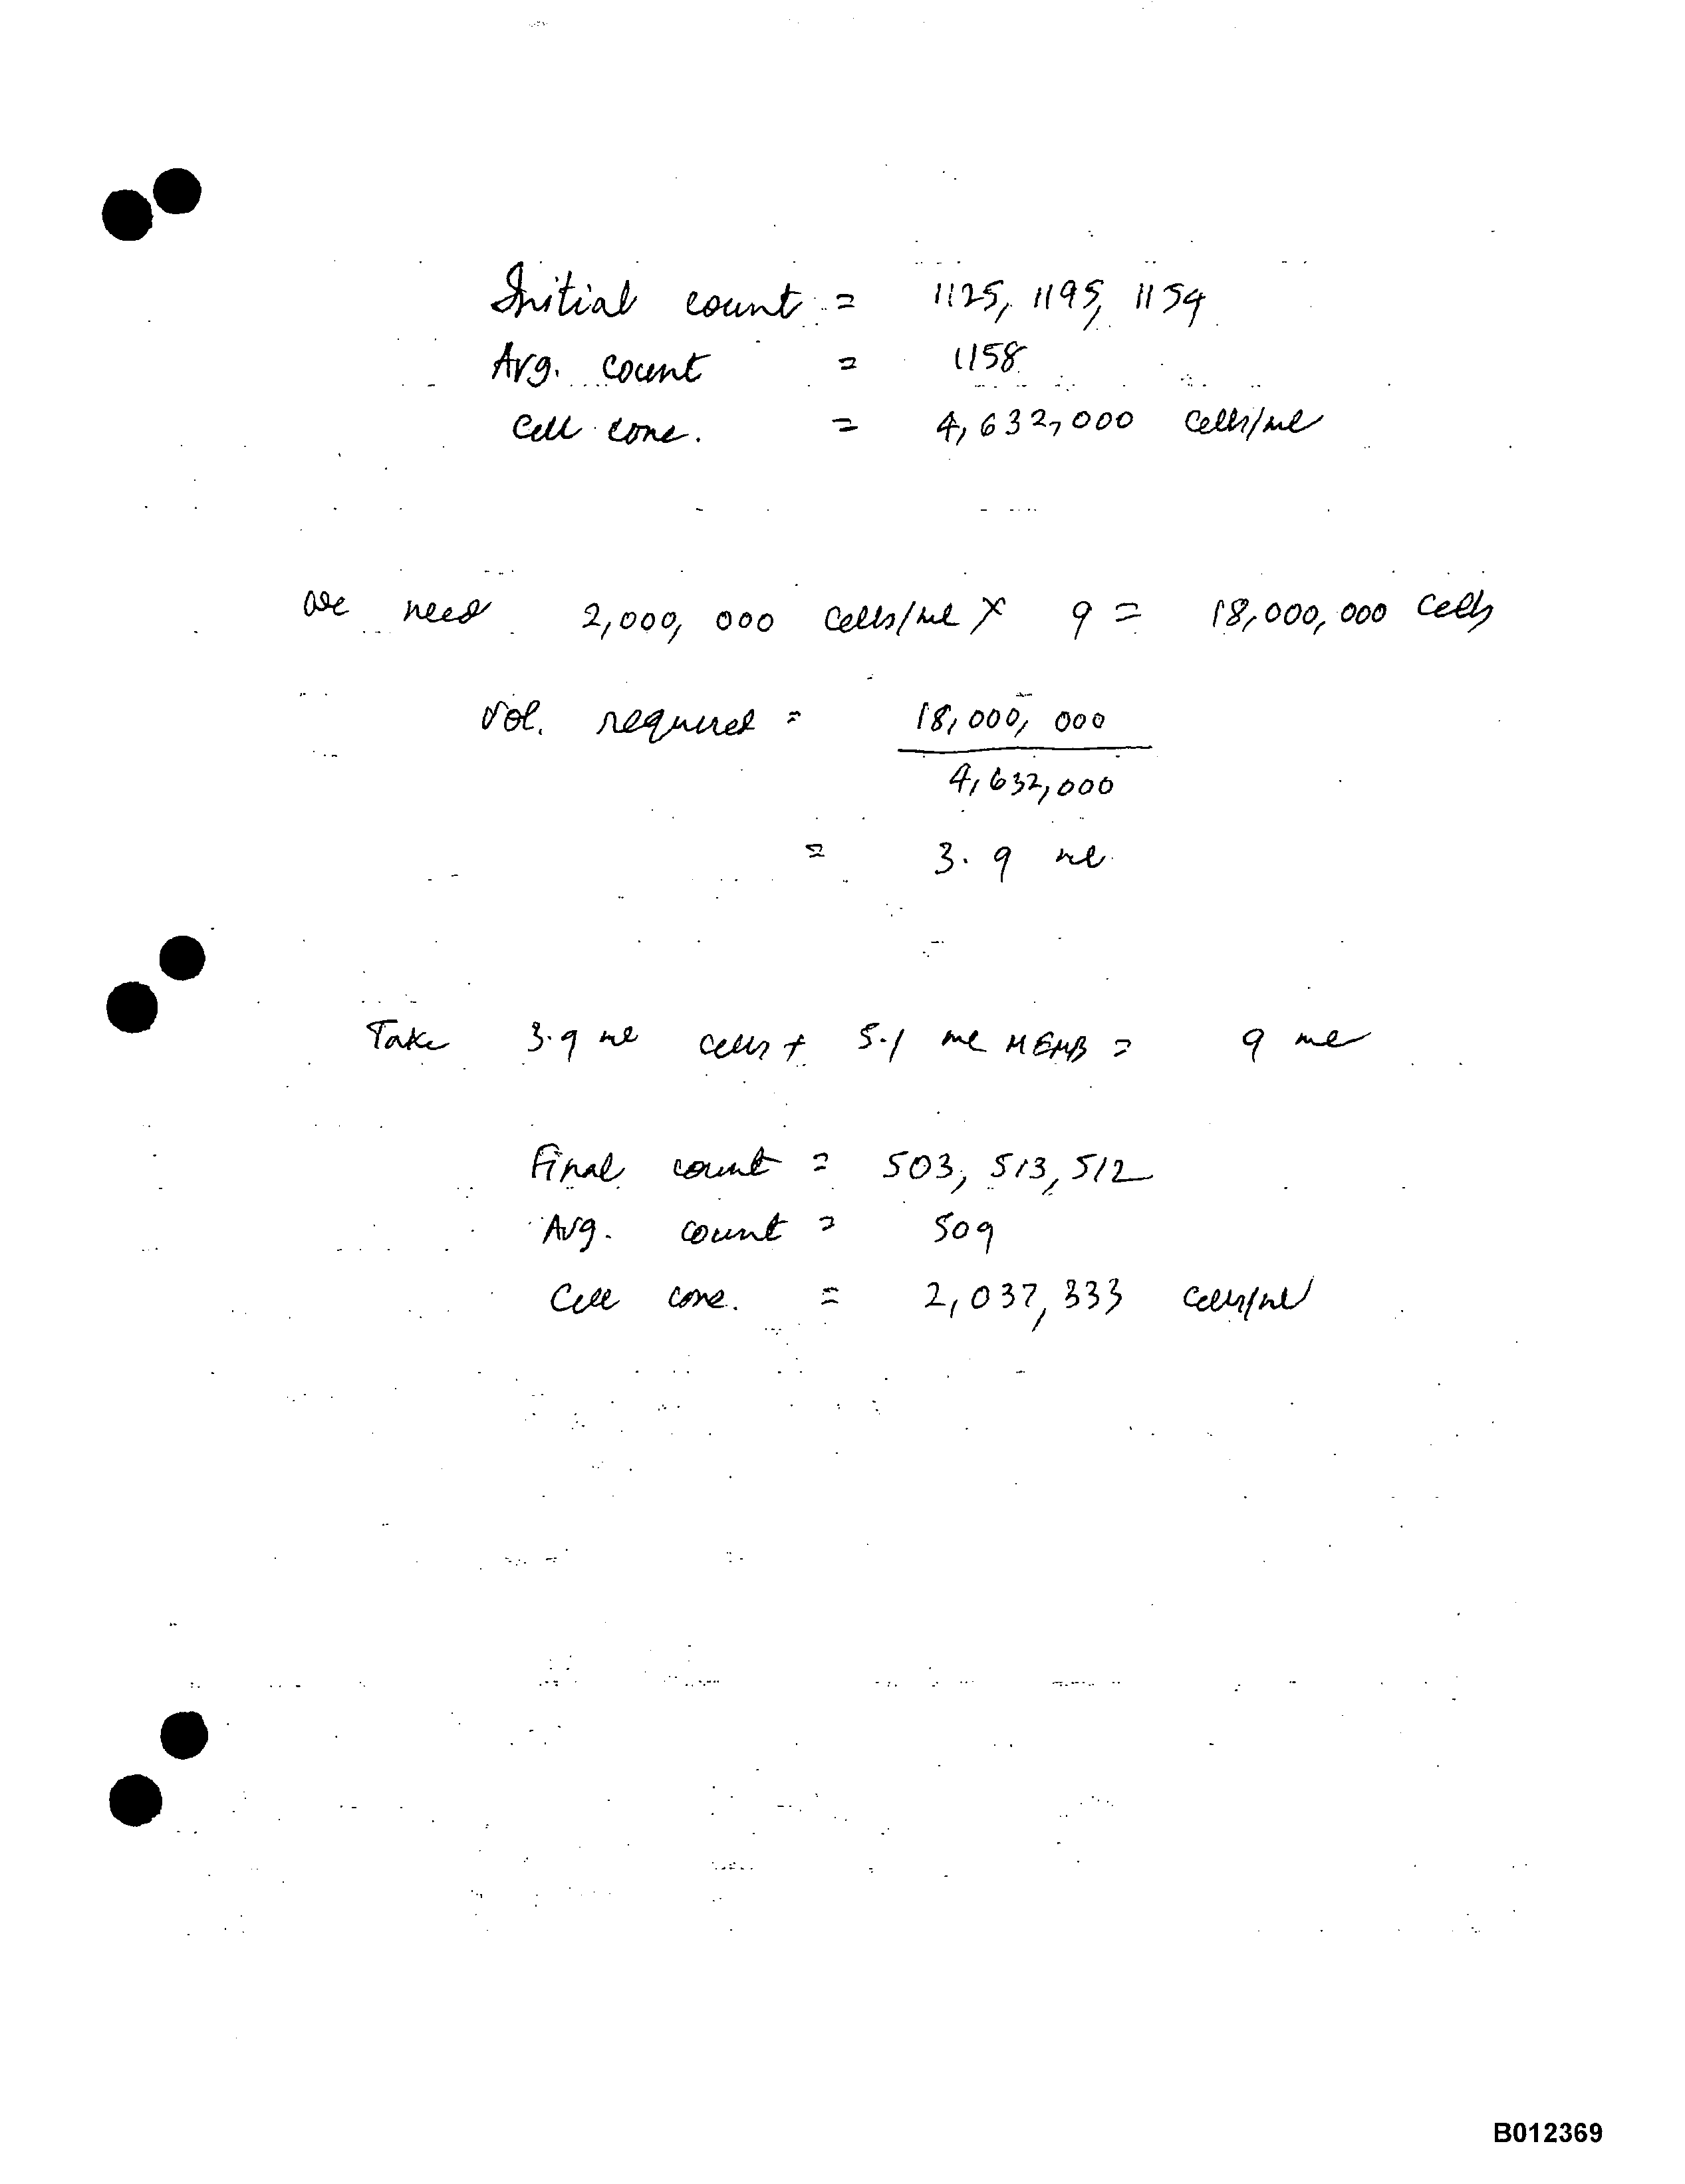 Initial count = 1125, 1195, 1154
Avg. count = 1158
Cell conc. = 4,632,000 cells/ml
We need 2,000,000 cells/ml X 9 = 18,000,000 cells
Vol. required = 18,000,000
4,632,000
= 3.9 ml
Take 3.9 ml cells + 5.1 ml MEMB = 9 ml
Final count = 503, 513, 512
Avg. count = 509
Cell conc. = 2,037,333 cells/ml
B012369